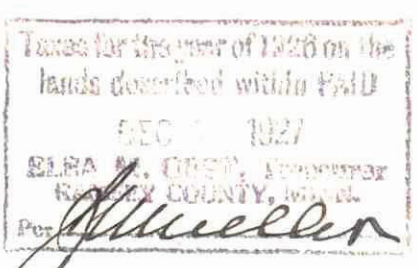 Taxes for the year of 1926 on the
lands described within PAID
DEC 1927
M. Treasurer
RAMSEY COUNTY, MINN.
Per Mueller